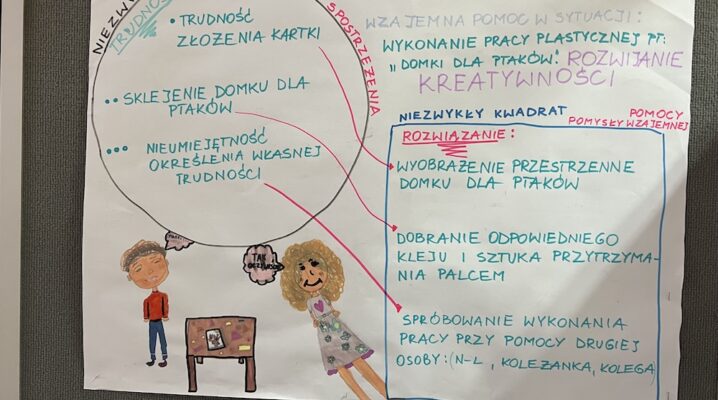 TRUDNOŚ
SPOSTRZEŻENIA
• TRUDNOŚĆ
ZŁOŻENIA KARTKI
•• SKLEJENIE DOMKU DLA
PTAKÓW
••• NIEUMIEJĘTNOŚĆ
OKREŚLENIA WŁASNEJ
TRUDNOŚCI
TAK
WZAJEMNA POMOC W SYTUACJI:
WYKONANIE PRACY PLASTYCZNEJ PT:
„DOMKI DLA PTAKÓW". ROZWIJANIE
KREATYWNOŚCI
NIEZWYKŁY KWADRAT
POMOCY
POMYSŁY WZAJEMNEJ
ROZWIĄZANIE:
WYOBRAŻENIE PRZESTRZENNE
DOMKU DLA PTAKÓW
DOBRANIE ODPOWIEDNIEGO
KLEJU I SZTUKA PRZYTRZYMA-
NIA PALCEM
SPRÓBOWANIE WYKONANIA
PRACY PRZY POMOCY DRUGIEJ
OSOBY: (N-L, KOLEŻANKA, KOLEGA)